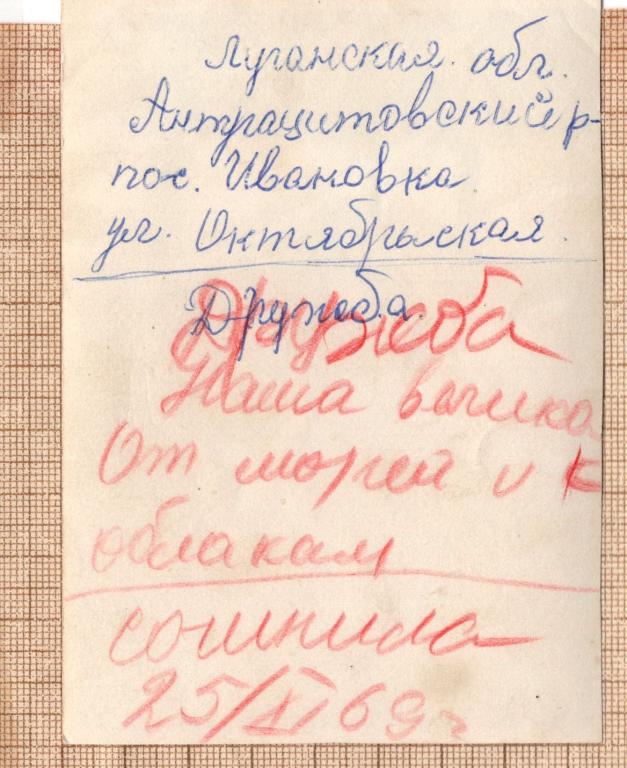 Луганская обл.
Антрацитовский р-
пос. Ивановка.
ул. Октябрьская.
Дружба.
Дружба
Наша велика
От морей и к
облакам
сочинила
25/XI 69 г